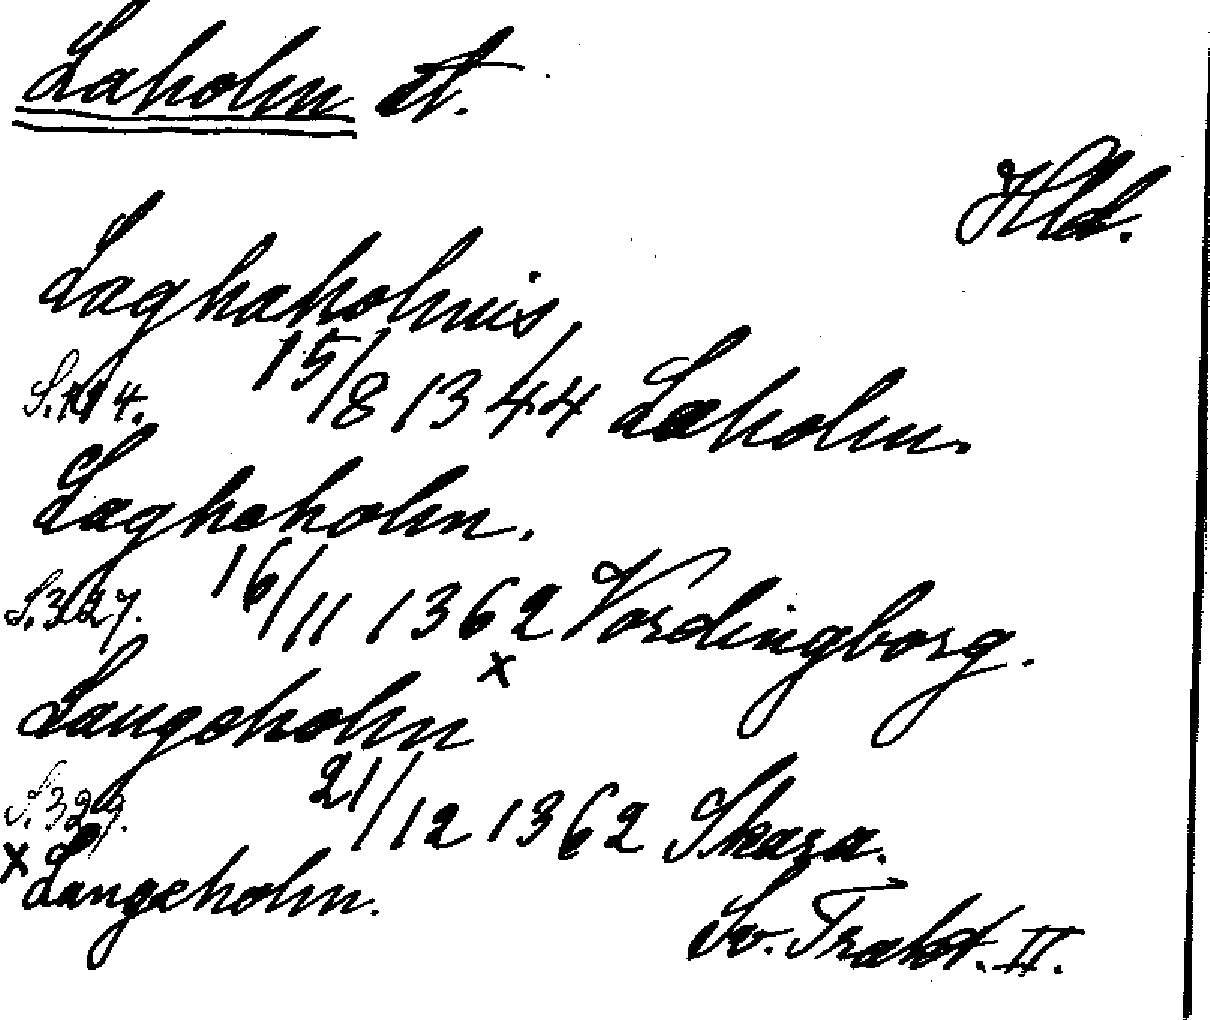 Laholm st.
Hld.
Laghaholmis
S.114. 15/8 1344 Laholm.
Laghaholm.
S.327. 16/11 1362 Vordingborg.
x
Langeholm
S.329. 21/12 1362 Skara.
x Langeholm.
Sv. Trakt. II.